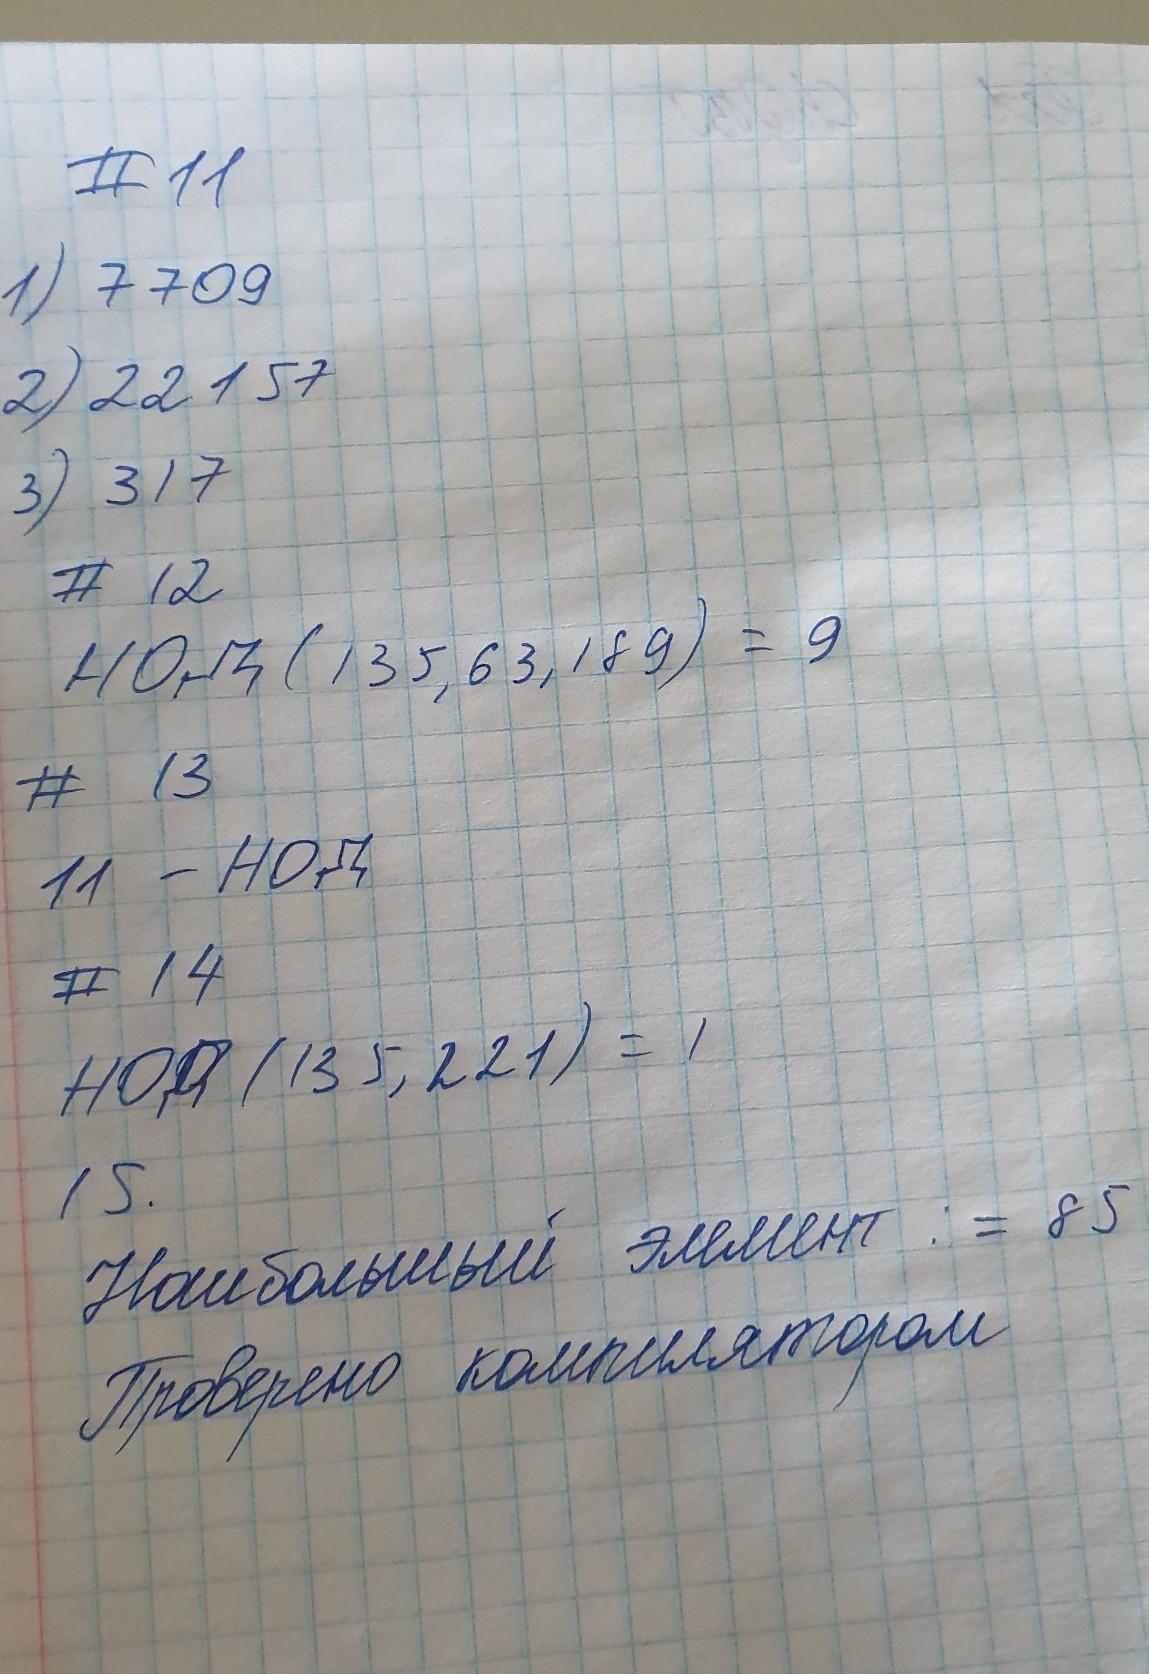 # 11
1) 7709
2) 22157
3) 317
# 12
НОД (135, 63, 189) = 9
# 13
11 - НОД
# 14
НОД (135, 221) = 1
15.
Наибольший элемент := 85
Проверено компилятором